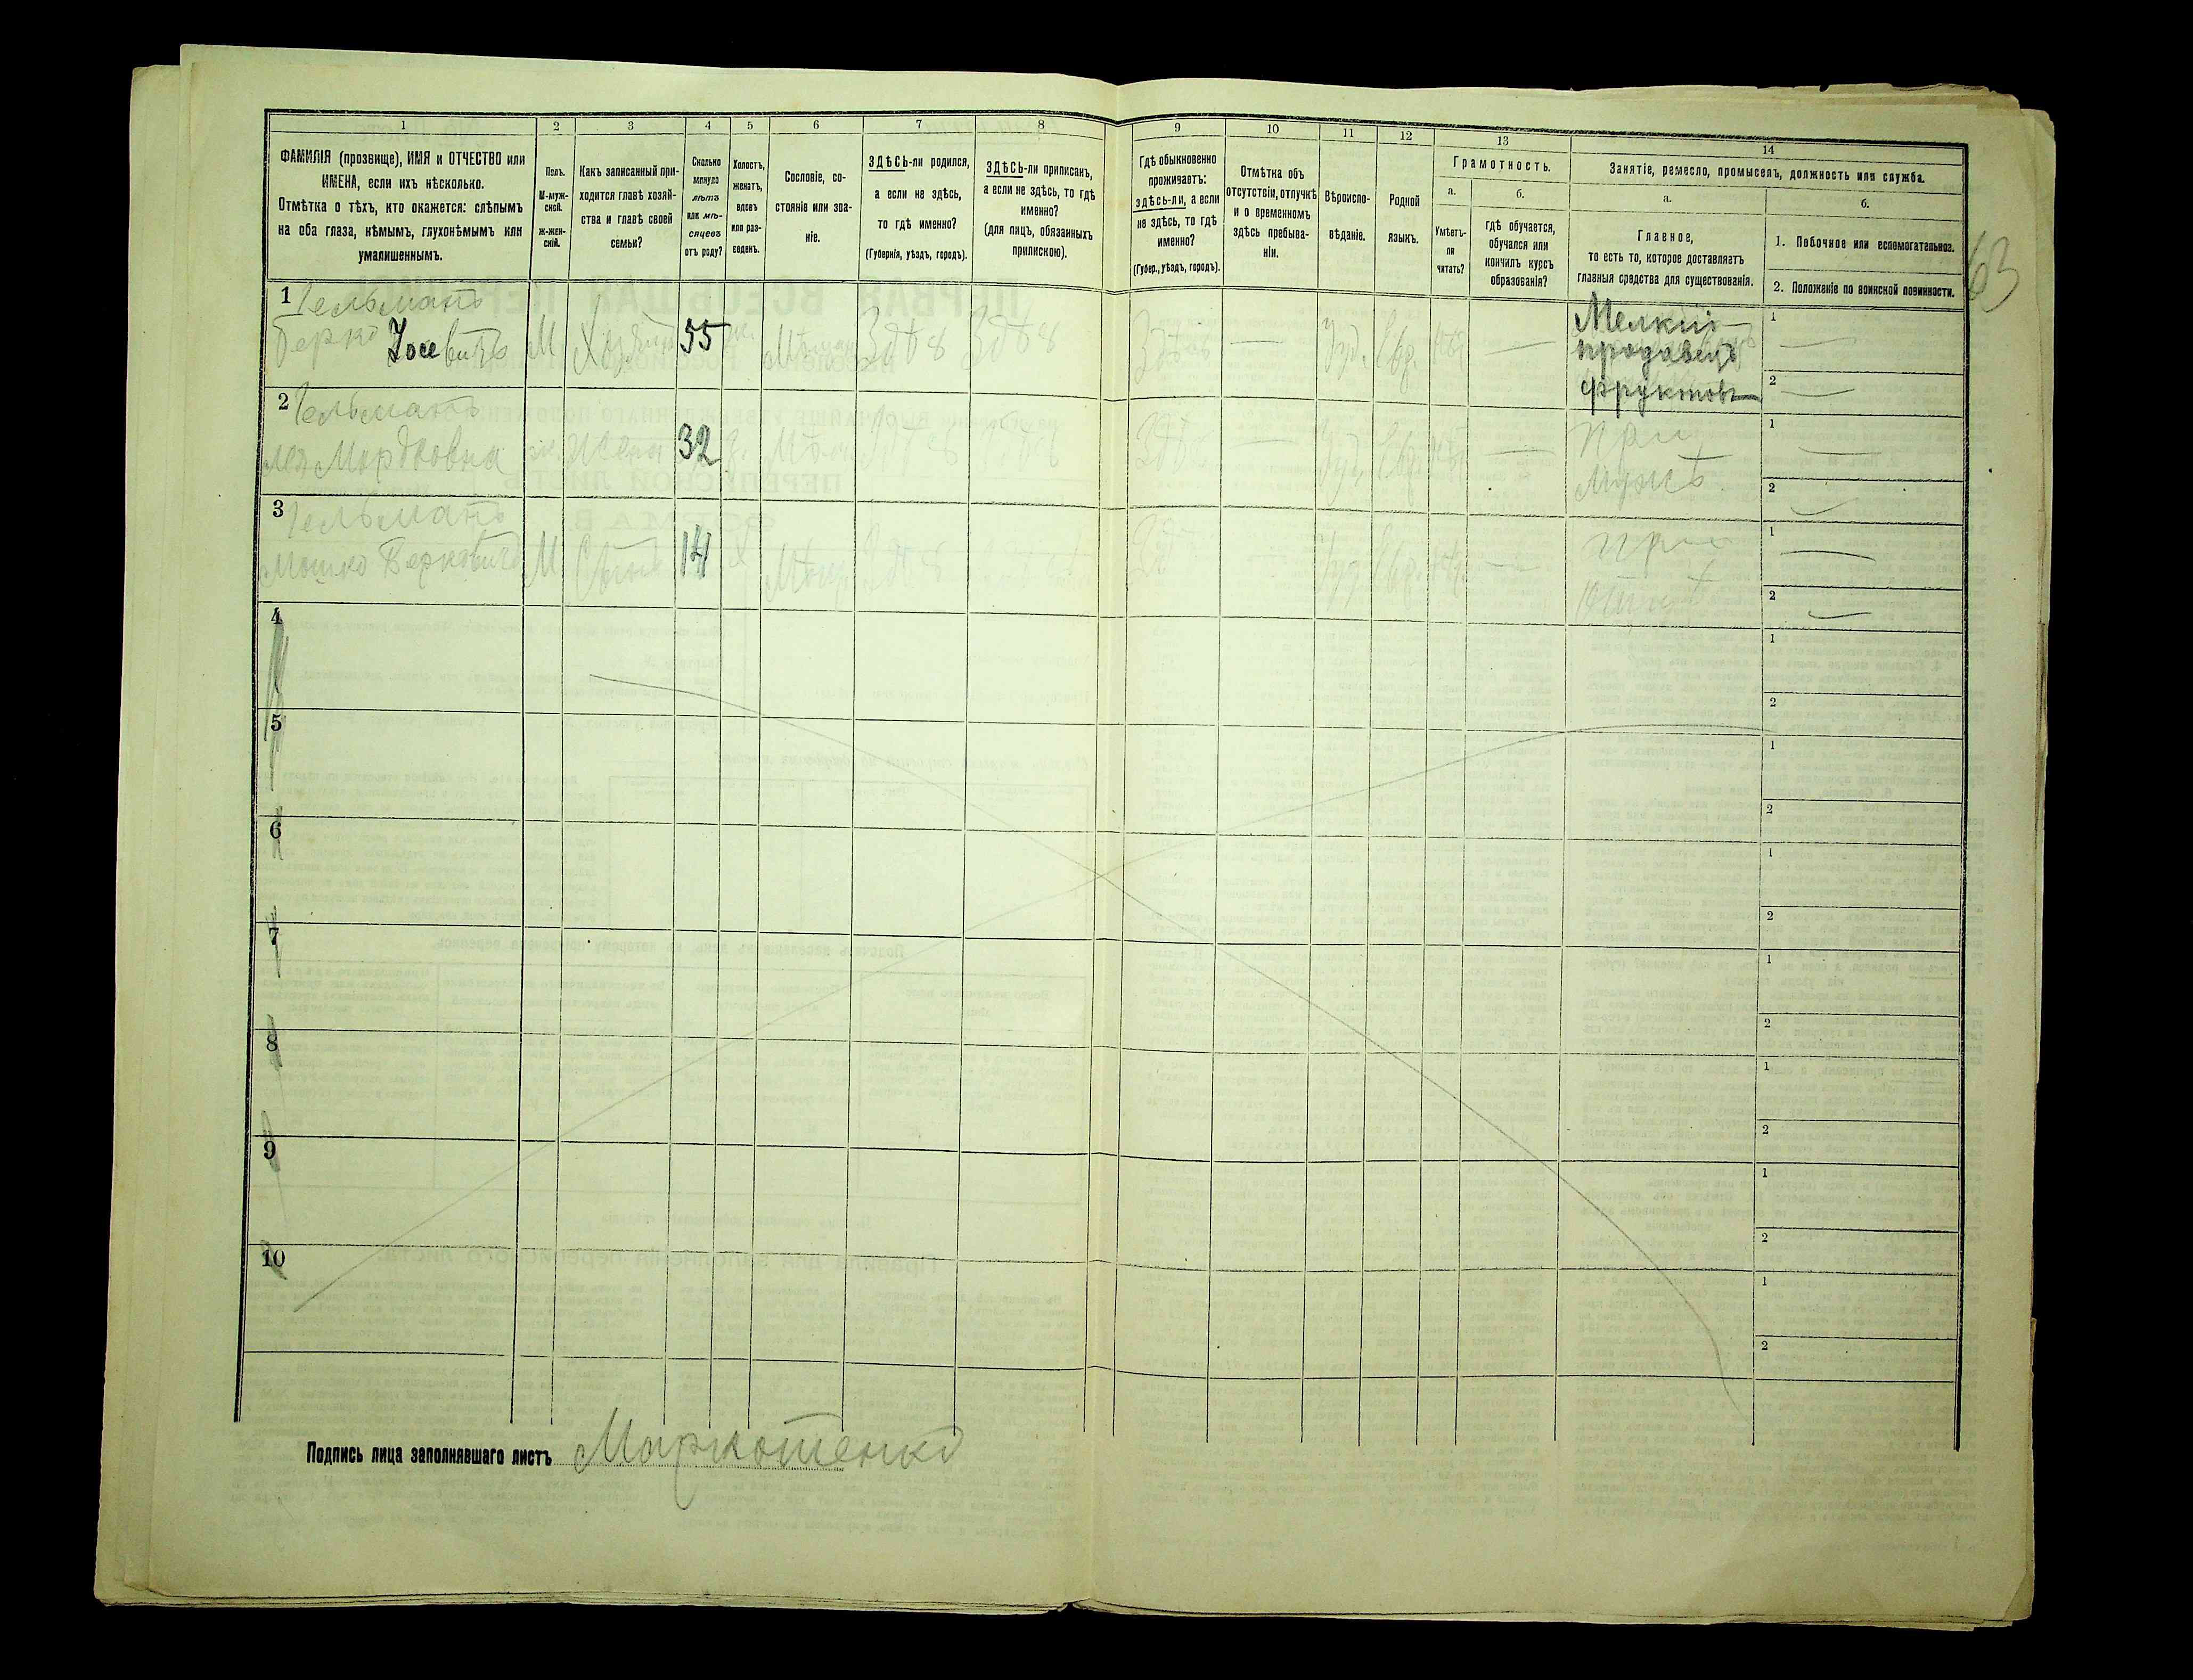 63
1
2
3
4
5
6
7
8
9
10
11
12
13
14
ФАМИЛІЯ (прозвище), ИМЯ и ОТЧЕСТВО или
ИМЕНА, если ихъ нѣсколько.
Отмѣтка о тѣхъ, кто окажется: слѣпымъ
на оба глаза, нѣмымъ, глухонѣмымъ или
умалишеннымъ.
Полъ.
М-муж-
ской.
Ж-жен-
скій.
Какъ записанный при-
ходится главѣ хозяй-
ства и главѣ своей
семьи?
Сколько
минуло
лѣтъ
или мѣ-
сяцевъ
отъ роду?
Холостъ,
женатъ,
вдовъ
или раз-
веденъ.
Сословіе, со-
стояніе или зва-
ніе.
ЗДѢСЬ-ли родился,
а если не здѣсь,
то гдѣ именно?
(Губернія, уѣздъ, городъ).
ЗДѢСЬ-ли приписанъ,
а если не здѣсь, то гдѣ
именно?
(для лицъ, обязанныхъ
припискою).
Гдѣ обыкновенно
проживаетъ:
здѣсь-ли, а если
не здѣсь, то гдѣ
именно?
(Губер., уѣздъ, городъ).
Отмѣтка объ
отсутствіи, отлучкѣ
и о временномъ
здѣсь пребыва-
ніи.
Вѣроиспо-
вѣданіе.
Родной
языкъ.
Грамотность.
а.
Умѣетъ-
ли
читать?
б.
гдѣ обучается,
обучался или
кончилъ курсъ
образованія?
Занятіе, ремесло, промыселъ, должность или служба.
а.
Главное,
то есть то, которое доставляетъ
главныя средства для существованія.
б.
1. Побочное или вспомогательное.
2. Положеніе по воинской повинности.
1 Гельманъ
Берко Іосевичъ М Хозяинъ 55 Здѣсь Здѣсь Здѣсь — Іуд. Евр. —
Мелкій
продавецъ
фруктовъ
1 —
2 —
2 Гельманъ
Лея Мордковна Жена 32 — Іуд. Евр. —
При
мужѣ
1 —
2 —
3 Гельманъ
Мошко Берковичъ М Сынъ 14 Х — Іуд. Евр. —
При
отцѣ
1 —
2 —
4
1
2
5
1
2
6
1
2
7
1
2
8
1
2
9
1
2
10
1
2
Подпись лица заполнявшаго листъ Маркотенко